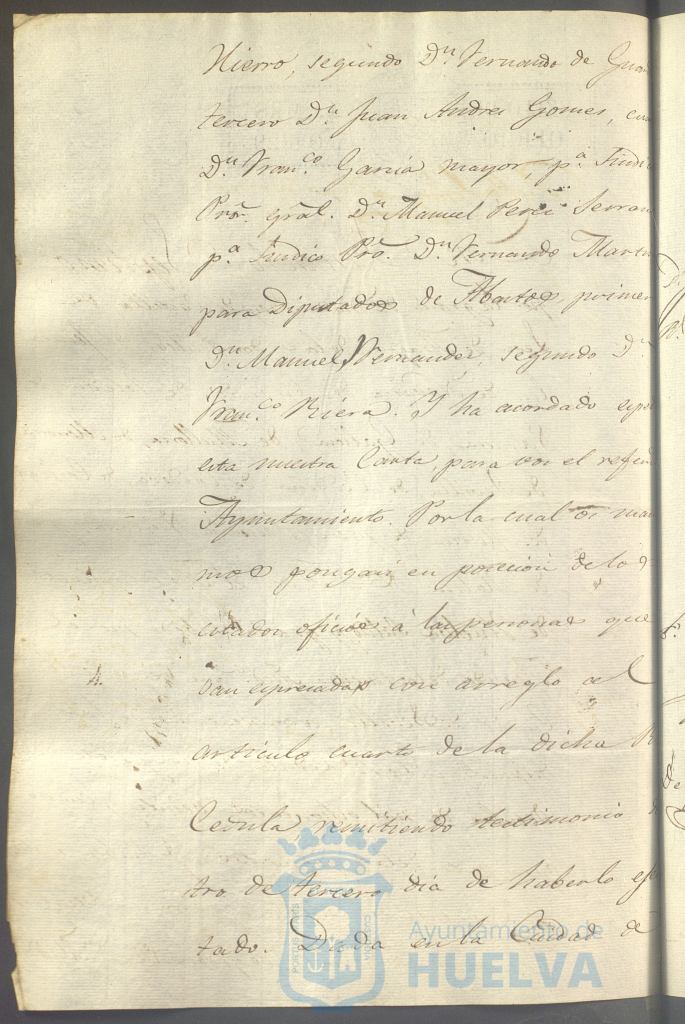 Hierro, segundo D.n Fernando de
tercero D.n Juan Andres Gomes,
D.n Fran.co Garcia mayor, p.a Sindic
Pror. gral. D.n Manuel Perez Serran
p.a Sindico Pro. D.n Fernando Mart
para Diputados de Abastos primer
D.n Manuel Fernandez, segundo D.n
Fran.co Riera. Y ha acordado espe
esta nuestra Carta, para con el refer
Ayuntamiento. Por la cual os man
mos pongais en posecion de los
citados oficios á las personas que
van expresadas con arreglo al
4.
articulo cuarto de la dicha R
Cedula, remitiendo testimonio
tro de tercero dia de haberlo eje
tado. Dada en la Ciudad de
Ayuntamiento de
HUELVA